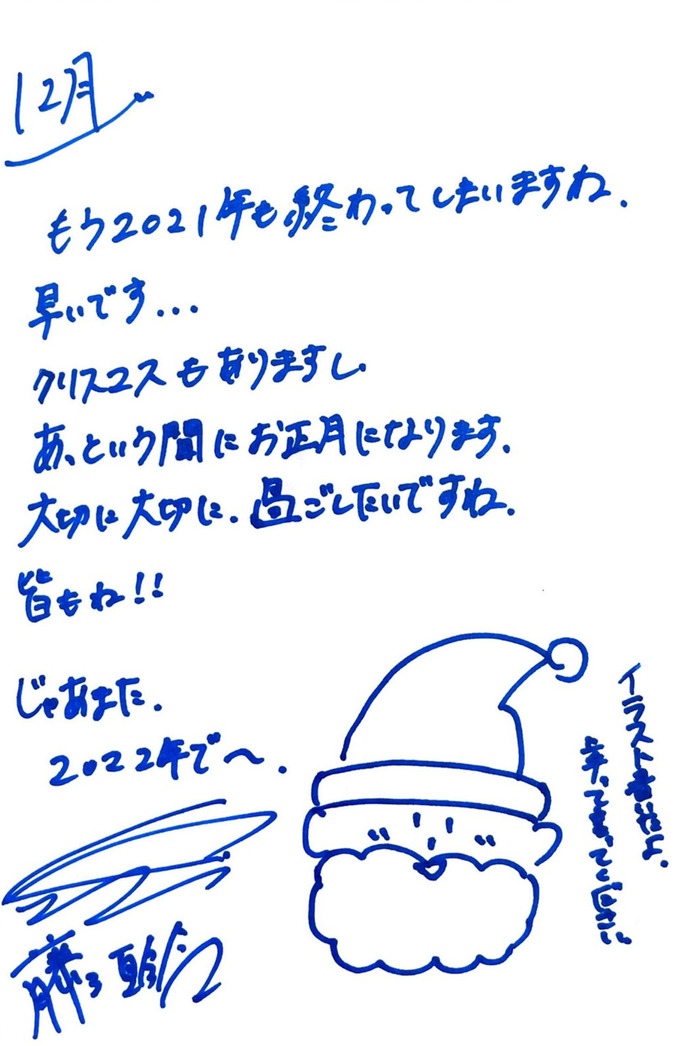 12月
もう2021年も終わってしまいますね.
早いです...
クリスマスもありますし.
あっという間にお正月になります.
大切に大切に.過ごしたいですね.
皆もね!!
じゃあまた.
2022年で〜.
イラスト
下さい